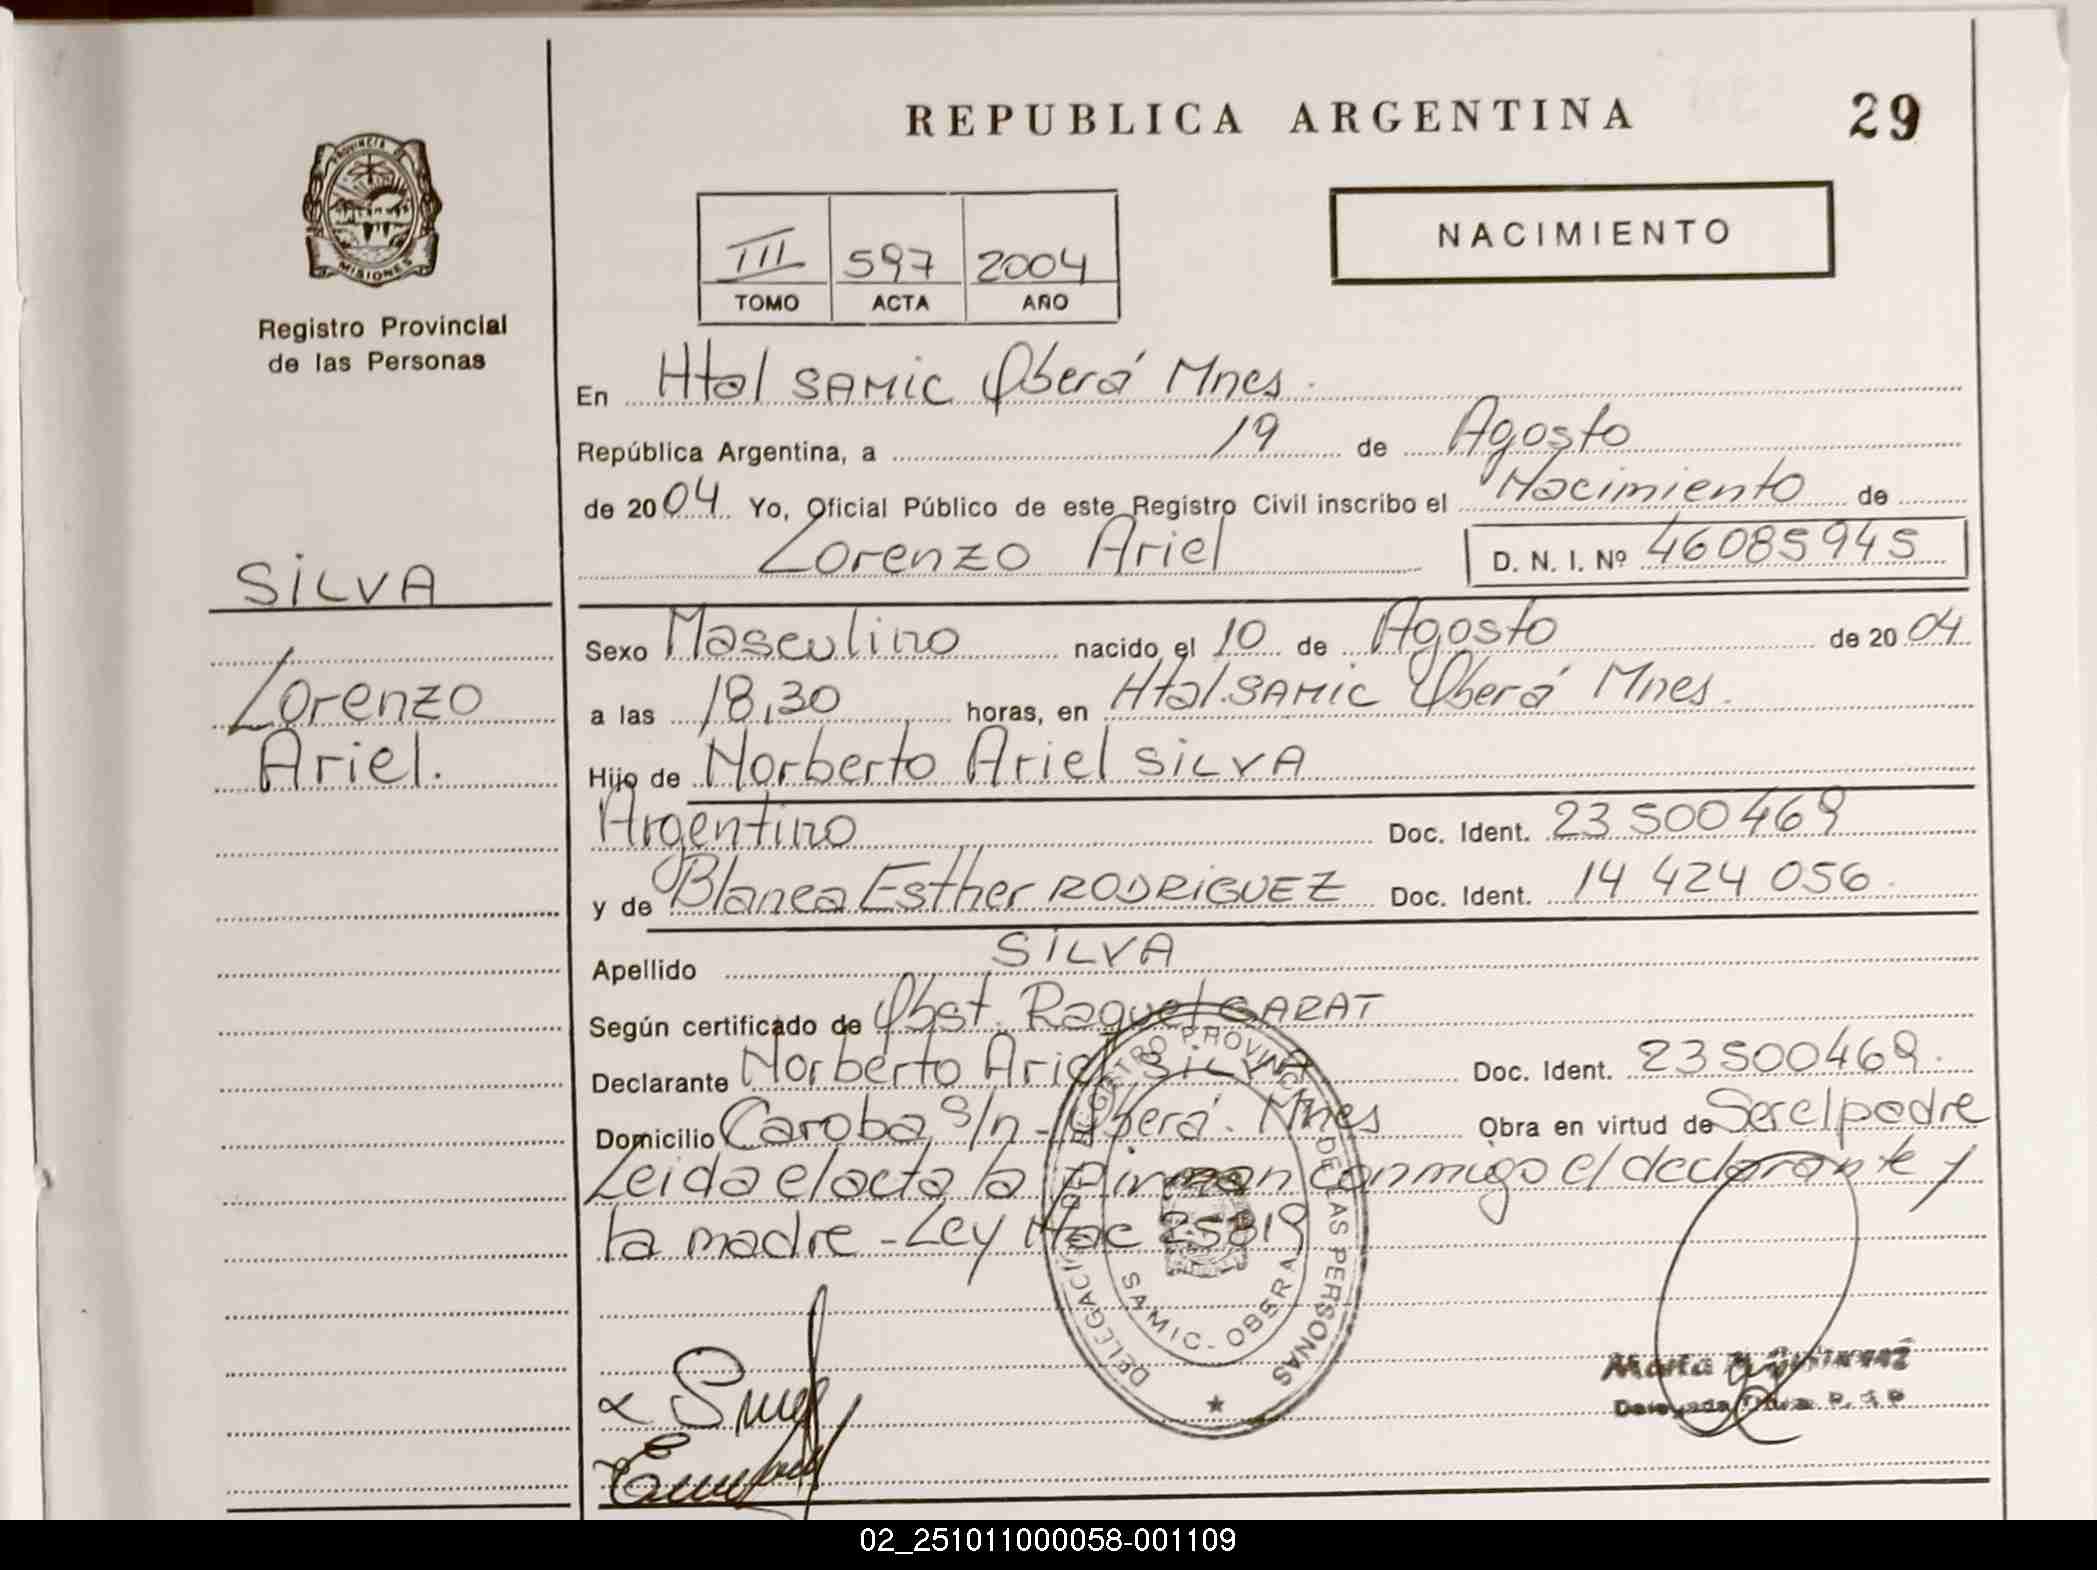 REPUBLICA ARGENTINA
29
PROVINCIA DE
MISIONES
Registro Provincial
de las Personas
III 597 2004
TOMO ACTA AÑO
NACIMIENTO
En Htal SAMIC Oberá Mnes.
República Argentina, a 19 de Agosto
de 2004 Yo, Oficial Público de este Registro Civil inscribo el Nacimiento de
Lorenzo Ariel D. N. I. Nº 46085945
SILVA
Lorenzo
Ariel.
Sexo Masculino nacido el 10 de Agosto de 2004
a las 18,30 horas, en Htal. SAMIC Oberá Mnes.
Hijo de Norberto Ariel SILVA
Argentino Doc. Ident. 23 500 469
y de Blanca Esther RODRIGUEZ Doc. Ident. 14 424 056
Apellido SILVA
Según certificado de Obst. Raquel GARAT
Declarante Norberto Ariel SILVA Doc. Ident. 23500469.
Domicilio Caroba S/n - Oberá. Mnes Obra en virtud de Ser el padre
Leida el acta la firman conmigo el declarante y
la madre - Ley Nac 25819
DELEGACION REGISTRO PROVINCIAL DE LAS PERSONAS
SAMIC - OBERA
02_251011000058-001109